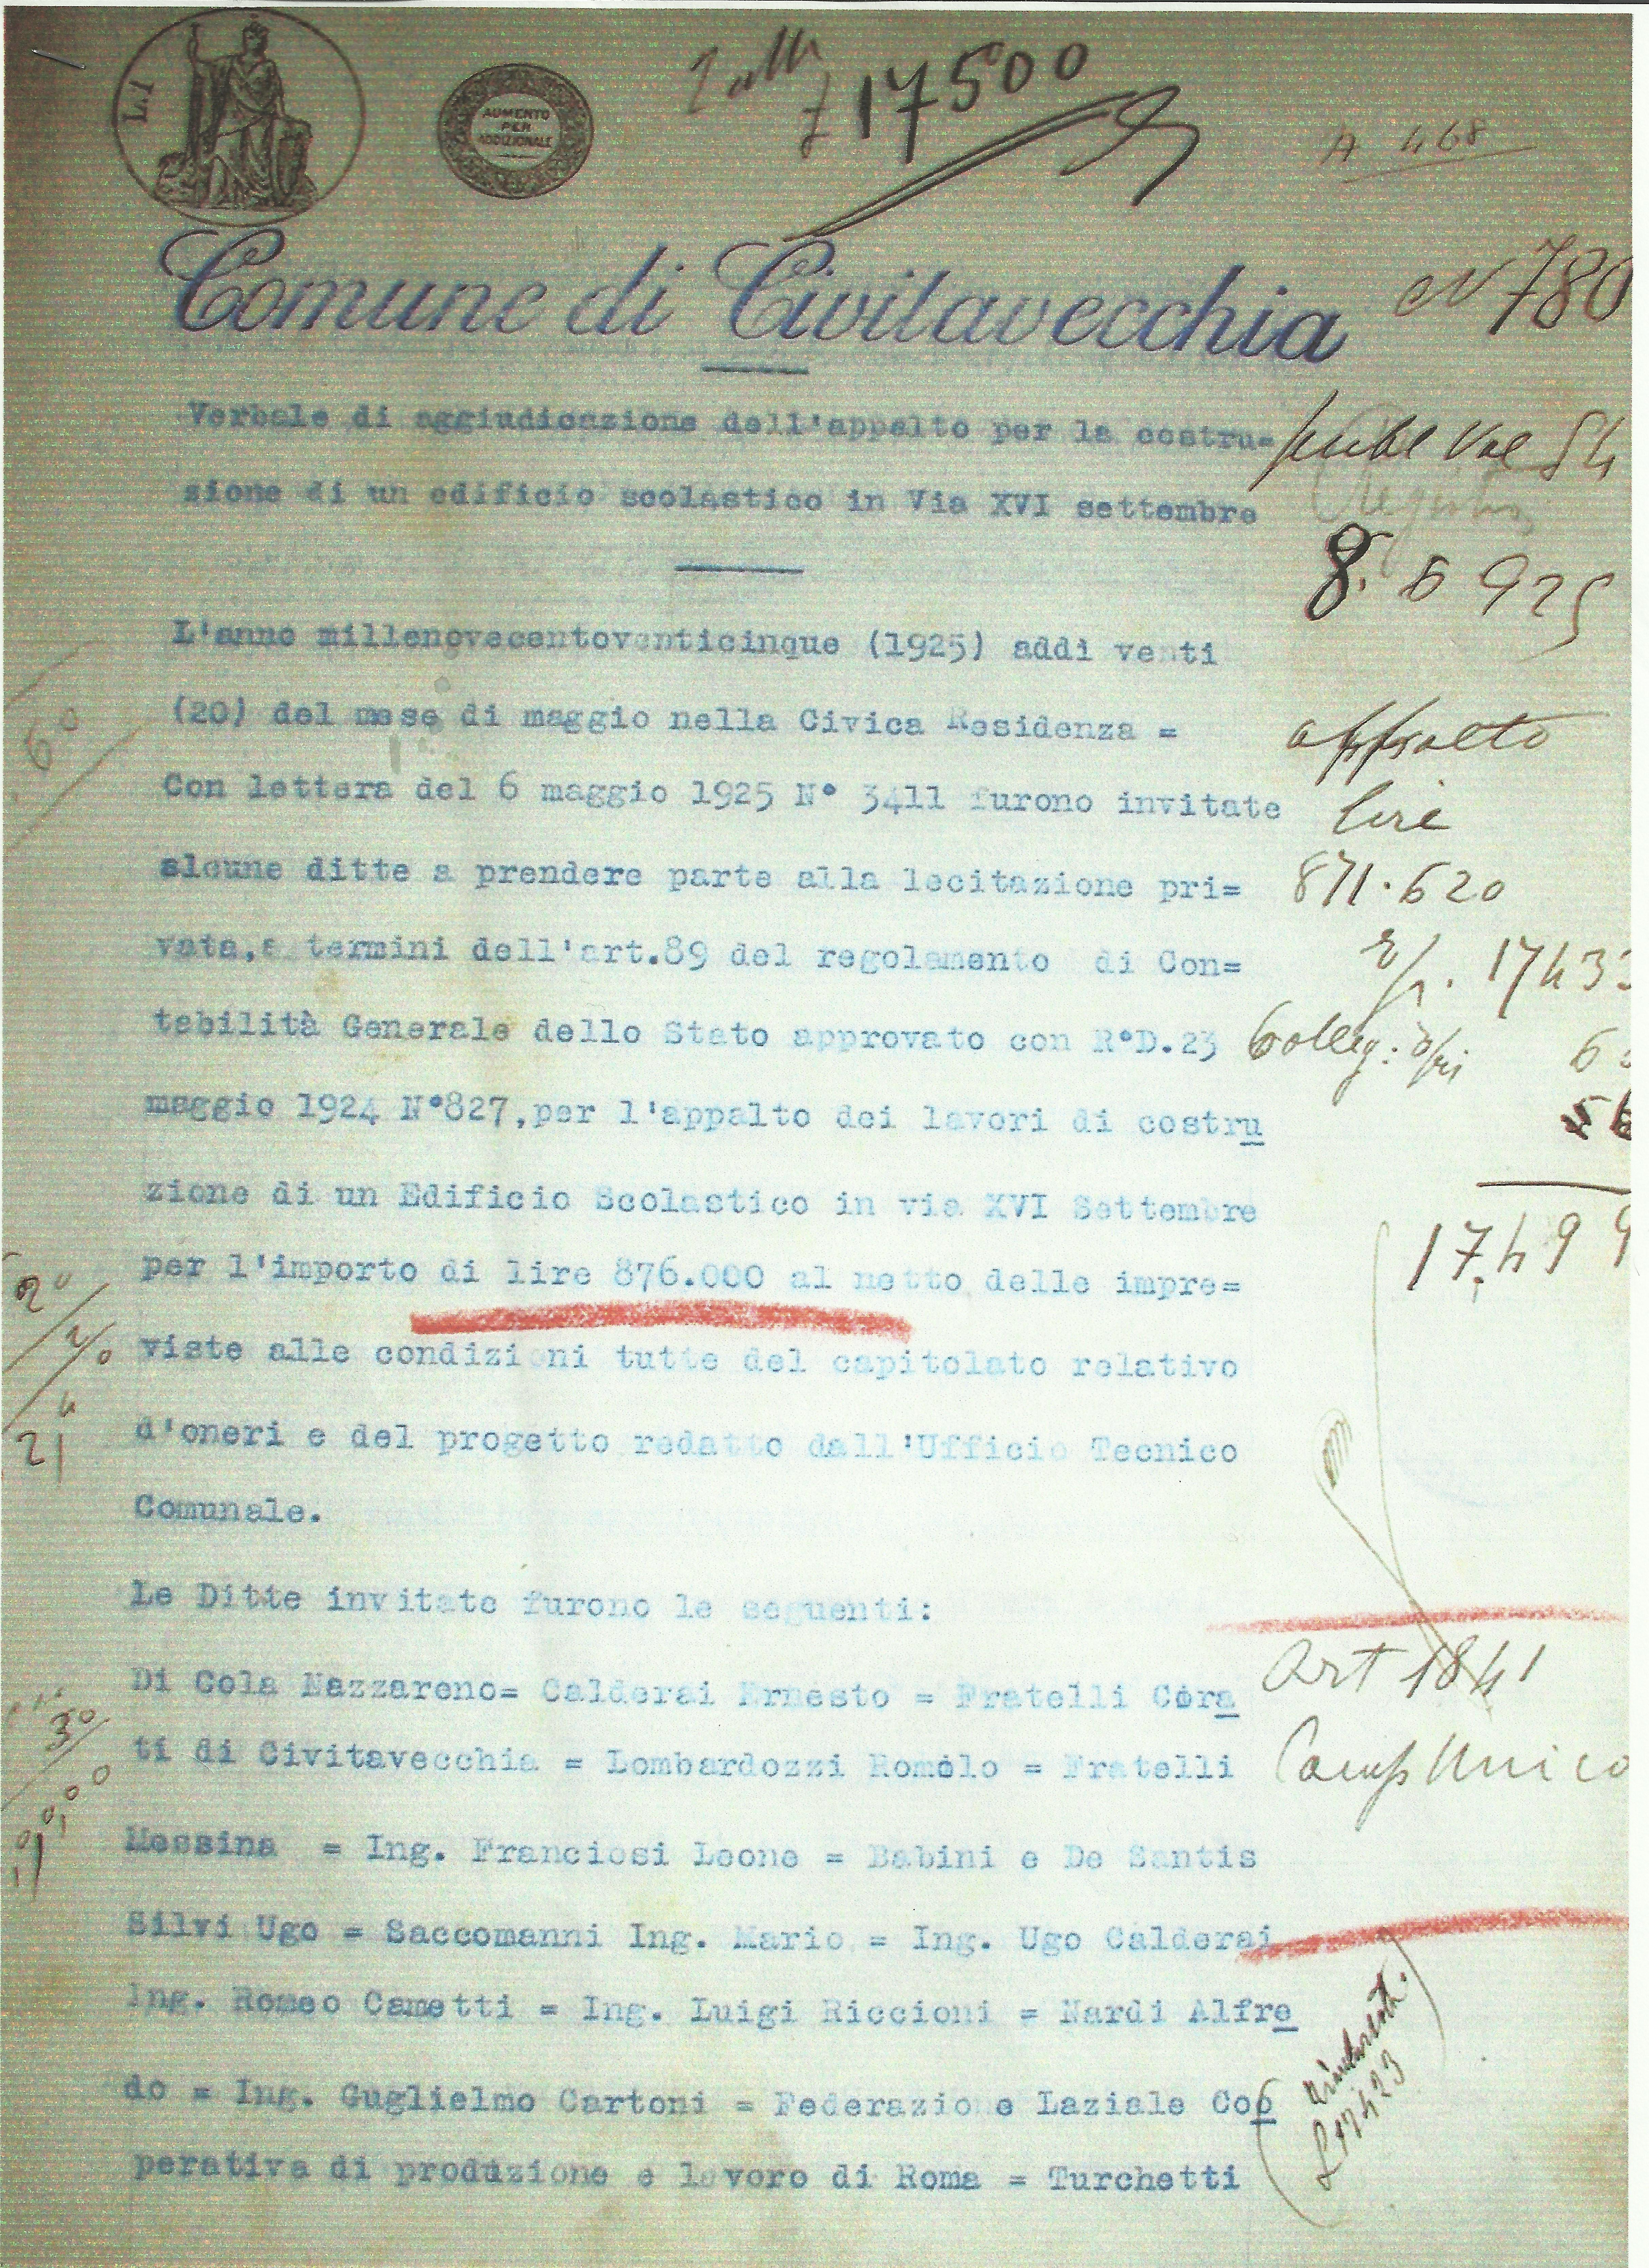 L.1
AUMENTO
PER
ADDIZIONALE
£ 17500
A 468
Comune di Civitavecchia
N 780
Verbale di aggiudicazione dell'appalto per la costru=
zione di un edificio scolastico in Via XVI settembre
8. 6 925
L'anno millenovecentoventicinque (1925) addì venti
(20) del mese di maggio nella Civica Residenza =
6°
appalto
Con lettera del 6 maggio 1925 N° 3411 furono invitate
lire
alcune ditte a prendere parte alla lecitazione pri=
871.620
vata,a termini dell'art.89 del regolamento di Con=
tabilità Generale dello Stato approvato con R°D.23
maggio 1924 N°827,per l'appalto dei lavori di costru
zione di un Edificio Scolastico in via XVI Settembre
per l'importo di lire 876.000 al netto delle impre=
17.499
2°
viste alle condizioni tutte del capitolato relativo
d'oneri e del progetto redatto dall'Ufficio Tecnico
21
Comunale.
Le Ditte invitate furono le seguenti:
Di Cola Nazzareno= Calderai Ernesto = Fratelli Cera
Art 1841
3°
ti di Civitavecchia = Lombardozzi Romolo = Fratelli
Camp Unico
Messina = Ing. Franciosi Leone = Babini e De Santis
Silvi Ugo = Saccomanni Ing. Mario = Ing. Ugo Calderai
Ing. Romeo Cametti = Ing. Luigi Riccioni = Nardi Alfre
do = Ing. Guglielmo Cartoni = Federazione Laziale Coo
perativa di produzione e lavoro di Roma = Turchetti